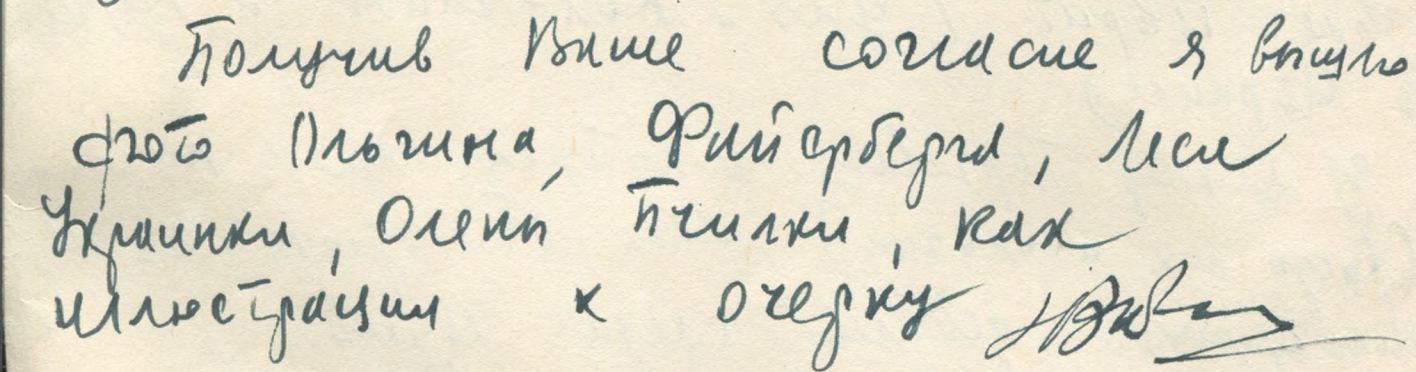 Получив Ваше согласие я вышлю
фото Ольгина, Файерберга, Леси
Украинки, Олены Пчилки, как
иллюстрации к очерку